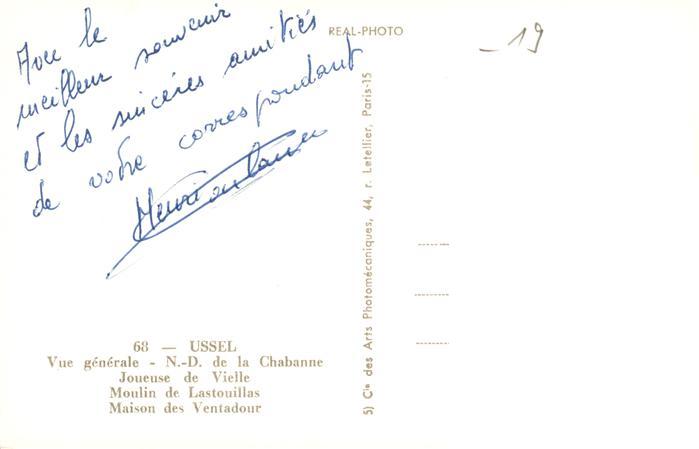 Avec le
meilleur souvenir
et les sincères amitiés
de votre correspondant
REAL-PHOTO
- 19
68 — USSEL
Vue générale - N.-D. de la Chabanne
Joueuse de Vielle
Moulin de Lastouillas
Maison des Ventadour
5) Cie des Arts Photomécaniques, 44, r. Letellier, Paris-15